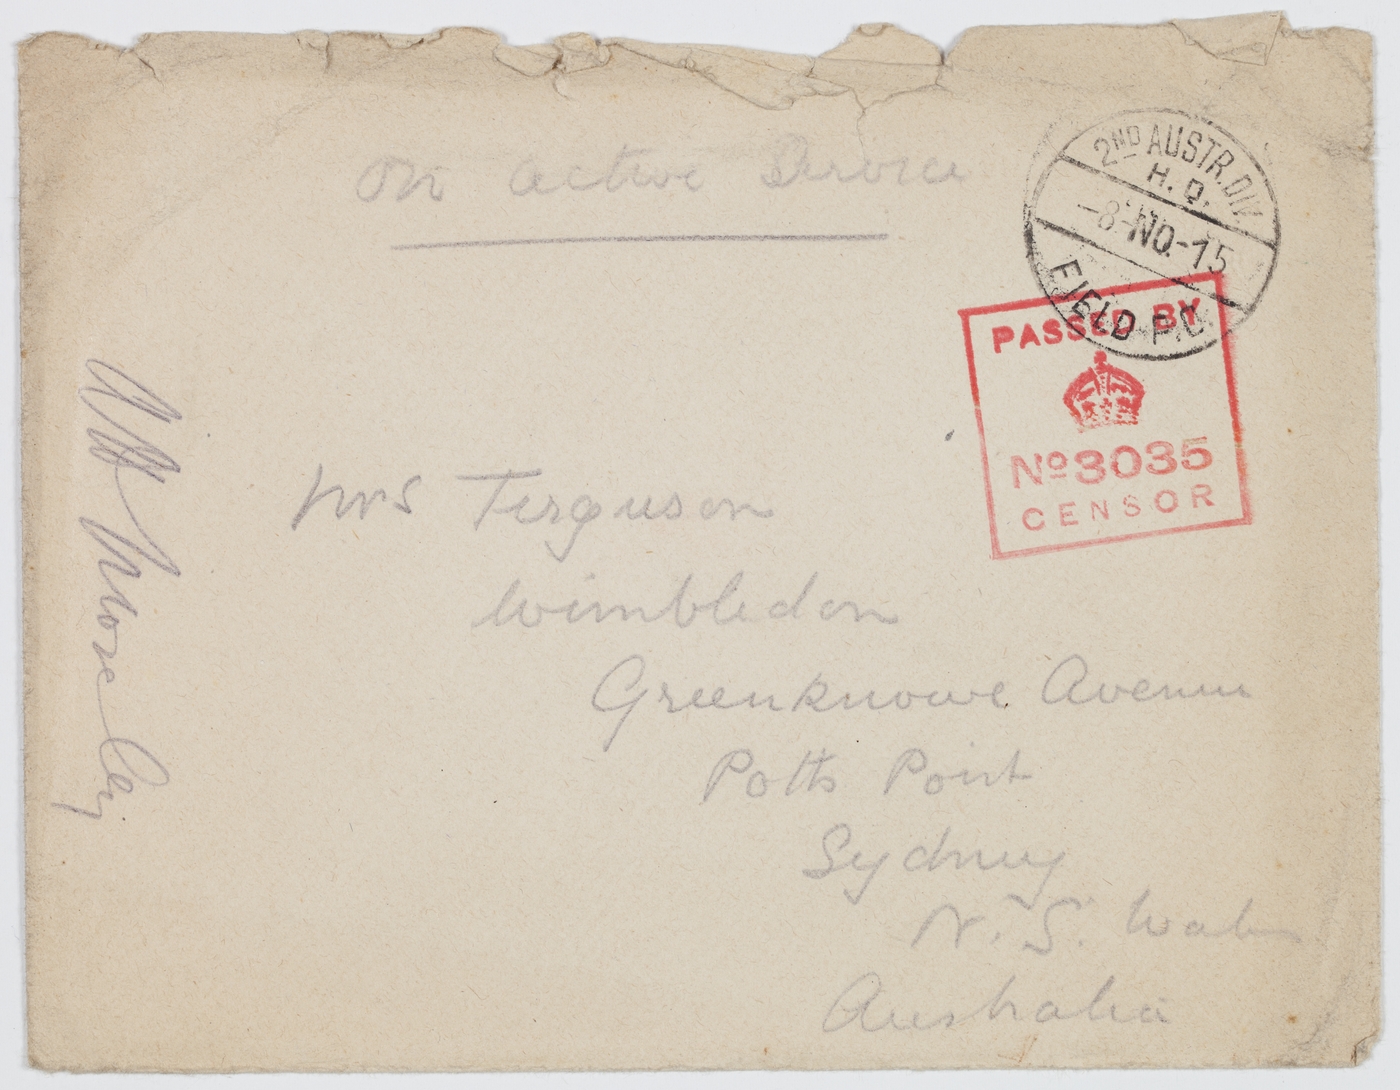 On Active Service
2ND AUSTR. DIV.
H.Q.
-8-NO-15
FIELD P.O.
PASSED BY
No 3035
CENSOR
Mrs Ferguson
Wimbledon
Greenknowe Avenue
Potts Point
Sydney
N. S. Wales
Australia
Moseley